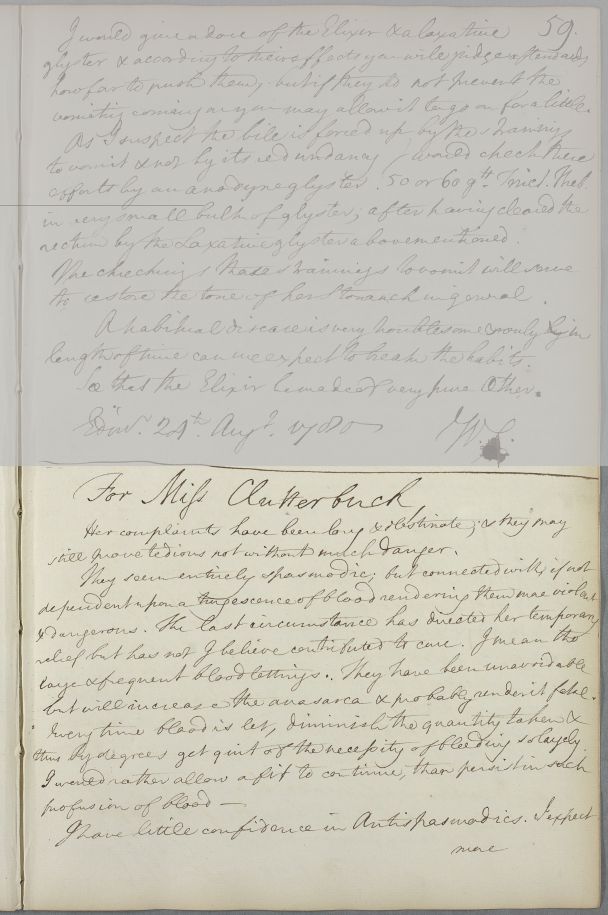 59.
I would give a dose of the Elixir & a laxative
glyster & according to their effects you will judge afterwards
how far to push them; but if they do not prevent the
vomiting coming on you may allow it to go on for a little.
As I suspect the bile is forced up by the straining
to vomit & not by its redundancy I would check these
efforts by an anodyne glyster. 50 or 60 gtt. Tinct. Theb.
in very small bulk of glyster; after having cleared the
rectum by the Laxative glyster abovementioned.
The checking these strainings to vomit will serve
to restore the tone of her Stomach in general.
A habitual disease is very troublesome & only by in
length of time can we expect to break the habits.
See that the Elixir be made of very pure Æther.
Edinr. 24th. Augt. 1780
W C
For Miss Clutterbuck
Her complaints have been long & obstinate; & they may
still prove tedious not without much danger.
They seem entirely spasmodic; but connected with, if not
dependent upon a turgescence of blood rendering them more violent
& dangerous. The last circumstance has directed her temporary
relief but has not I believe contributed to cure. I mean the
large & frequent bloodlettings. They have been unavoidable
but will increase the anasarca & probably render it fatal.
Every time blood is let, diminish the quantity taken &
thus by degrees get quit of the necessity of bleeding so largely.
I would rather allow a fit to continue, than persist in such
profusion of blood —
I have little confidence in Antispasmodics. I expect
more